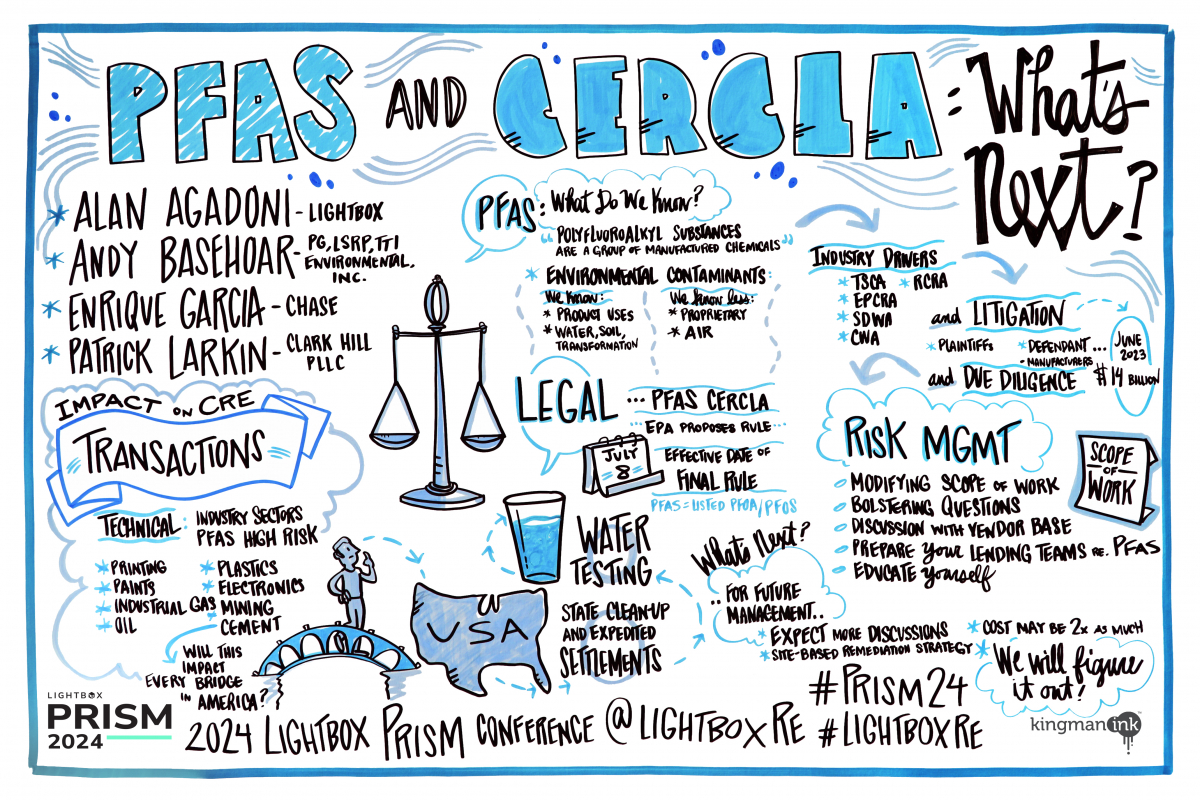 PFAS AND CERCLA: What's
Next?
* ALAN AGADONI - LIGHTBOX
* ANDY BASEHOAR - PG, LSRP, TTI
ENVIRONMENTAL,
INC.
* ENRIQUE GARCIA - CHASE
* PATRICK LARKIN - CLARK HILL
PLLC
IMPACT ON CRE
TRANSACTIONS
TECHNICAL: INDUSTRY SECTORS
PFAS HIGH RISK
* PRINTING
* PAINTS
* INDUSTRIAL GAS
* OIL
* PLASTICS
* ELECTRONICS
* MINING
CEMENT
WILL THIS
IMPACT
EVERY BRIDGE
IN AMERICA?
PFAS: What Do We Know?
"POLYFLUOROALKYL SUBSTANCES
ARE A GROUP OF MANUFACTURED CHEMICALS"
* ENVIRONMENTAL CONTAMINANTS:
We Know:
* PRODUCT USES
* WATER, SOIL,
TRANSFORMATION
We know less:
* PROPRIETARY
* AIR
LEGAL ... PFAS CERCLA
EPA PROPOSES RULE...
JULY
8
EFFECTIVE DATE OF
FINAL RULE
PFAS = LISTED PFOA/PFOS
WATER
TESTING
USA
STATE CLEAN-UP
AND EXPEDITED
SETTLEMENTS
INDUSTRY DRIVERS
* TSCA * RCRA
* EPCRA
* SDWA
* CWA
and LITIGATION
* PLAINTIFFS * DEFENDANT...
- MANUFACTURERS
JUNE
2023
$14 BILLION
and DUE DILIGENCE
RISK MGMT
MODIFYING SCOPE OF WORK
BOLSTERING QUESTIONS
DISCUSSION WITH VENDOR BASE
PREPARE your LENDING TEAMS RE. PFAS
EDUCATE yourself
SCOPE
OF
WORK
What's Next?
..FOR FUTURE
MANAGEMENT..
* EXPECT MORE DISCUSSIONS
* SITE-BASED REMEDIATION STRATEGY
* COST MAY BE 2x AS MUCH
* We will figure
it out!
LIGHTBOX
PRISM
2024
2024 LIGHTBOX PRISM CONFERENCE @LIGHTBOXRE
#PRISM24
#LIGHTBOXRE
kingman ink™